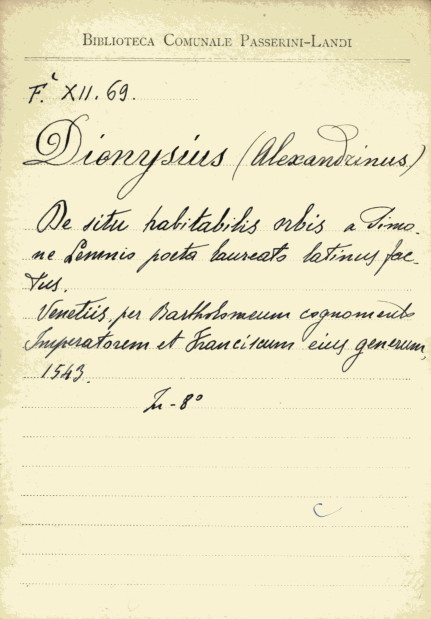 BIBLIOTECA COMUNALE PASSERINI-LANDI
F.ᶜ XII. 69.
Dionysius (Alexandrinus)
De situ habitabilis orbis a Simo-
ne Lemnio poeta laureato latinus fac-
tus.
Venetiis, per Bartholomeum cognomento
Imperatorem et Franciscum eius generum,
1543.
In-8°
C